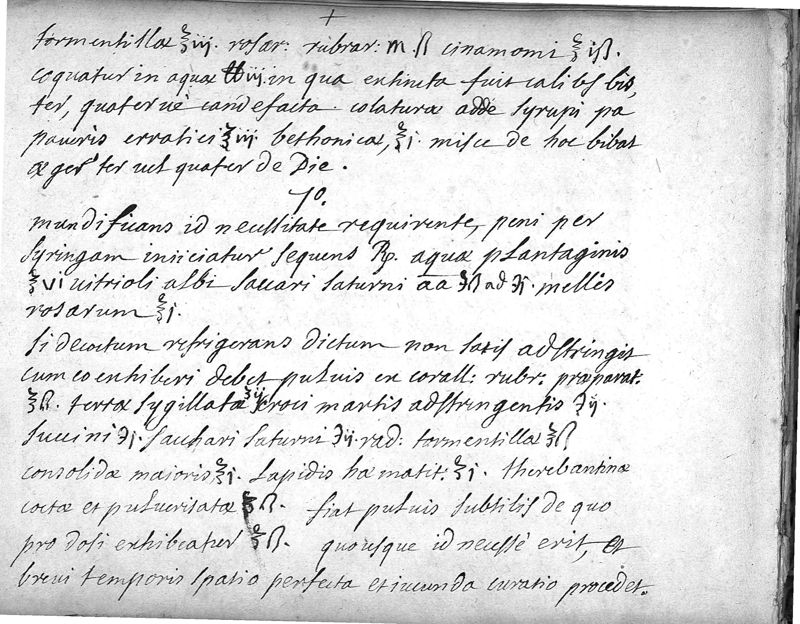 +
tormentillæ ℥iij. rosar: rubrar: m ß cinamomi ℥iß.
coquatur in aquæ ℔iij in qua extincta fuit calibs bis,
ter, quaterve candefacta. colaturæ adde syrupi pa
paveris erratici ℥iij bethonicæ, ℥j. misce de hoc bibat
æger ter vel quater de Die.
7o.
mundificans id necessitate requirente, peni per
Syringam iniiciatur sequens ℞. aquæ plantaginis
℥vi vitrioli albi saccari saturni aa ℈ß ad ℈j. mellis
rosarum ℥j.
Si decoctum refrigerans dictum non satis adstringit
cum eo exhiberi debet pulvis ex corall: rubr. præparat.
℥ß. terræ sygillatæ ℥ij croci martis adstringentis ℈ij.
succini ℈j. sacchari saturni ℈ij. rad: tormentillæ ℥ß
consolidæ maioris, ℥j. Lapidis hæmatit. ℥j. therebantinæ
coctæ et pulverisatæ ℥ß. fiat pulvis subtilis de quo
pro dosi exhibeatur ℥ß. quousque id necesse erit, et
brevi temporis spatio perfecta et iucunda curatio procedet.